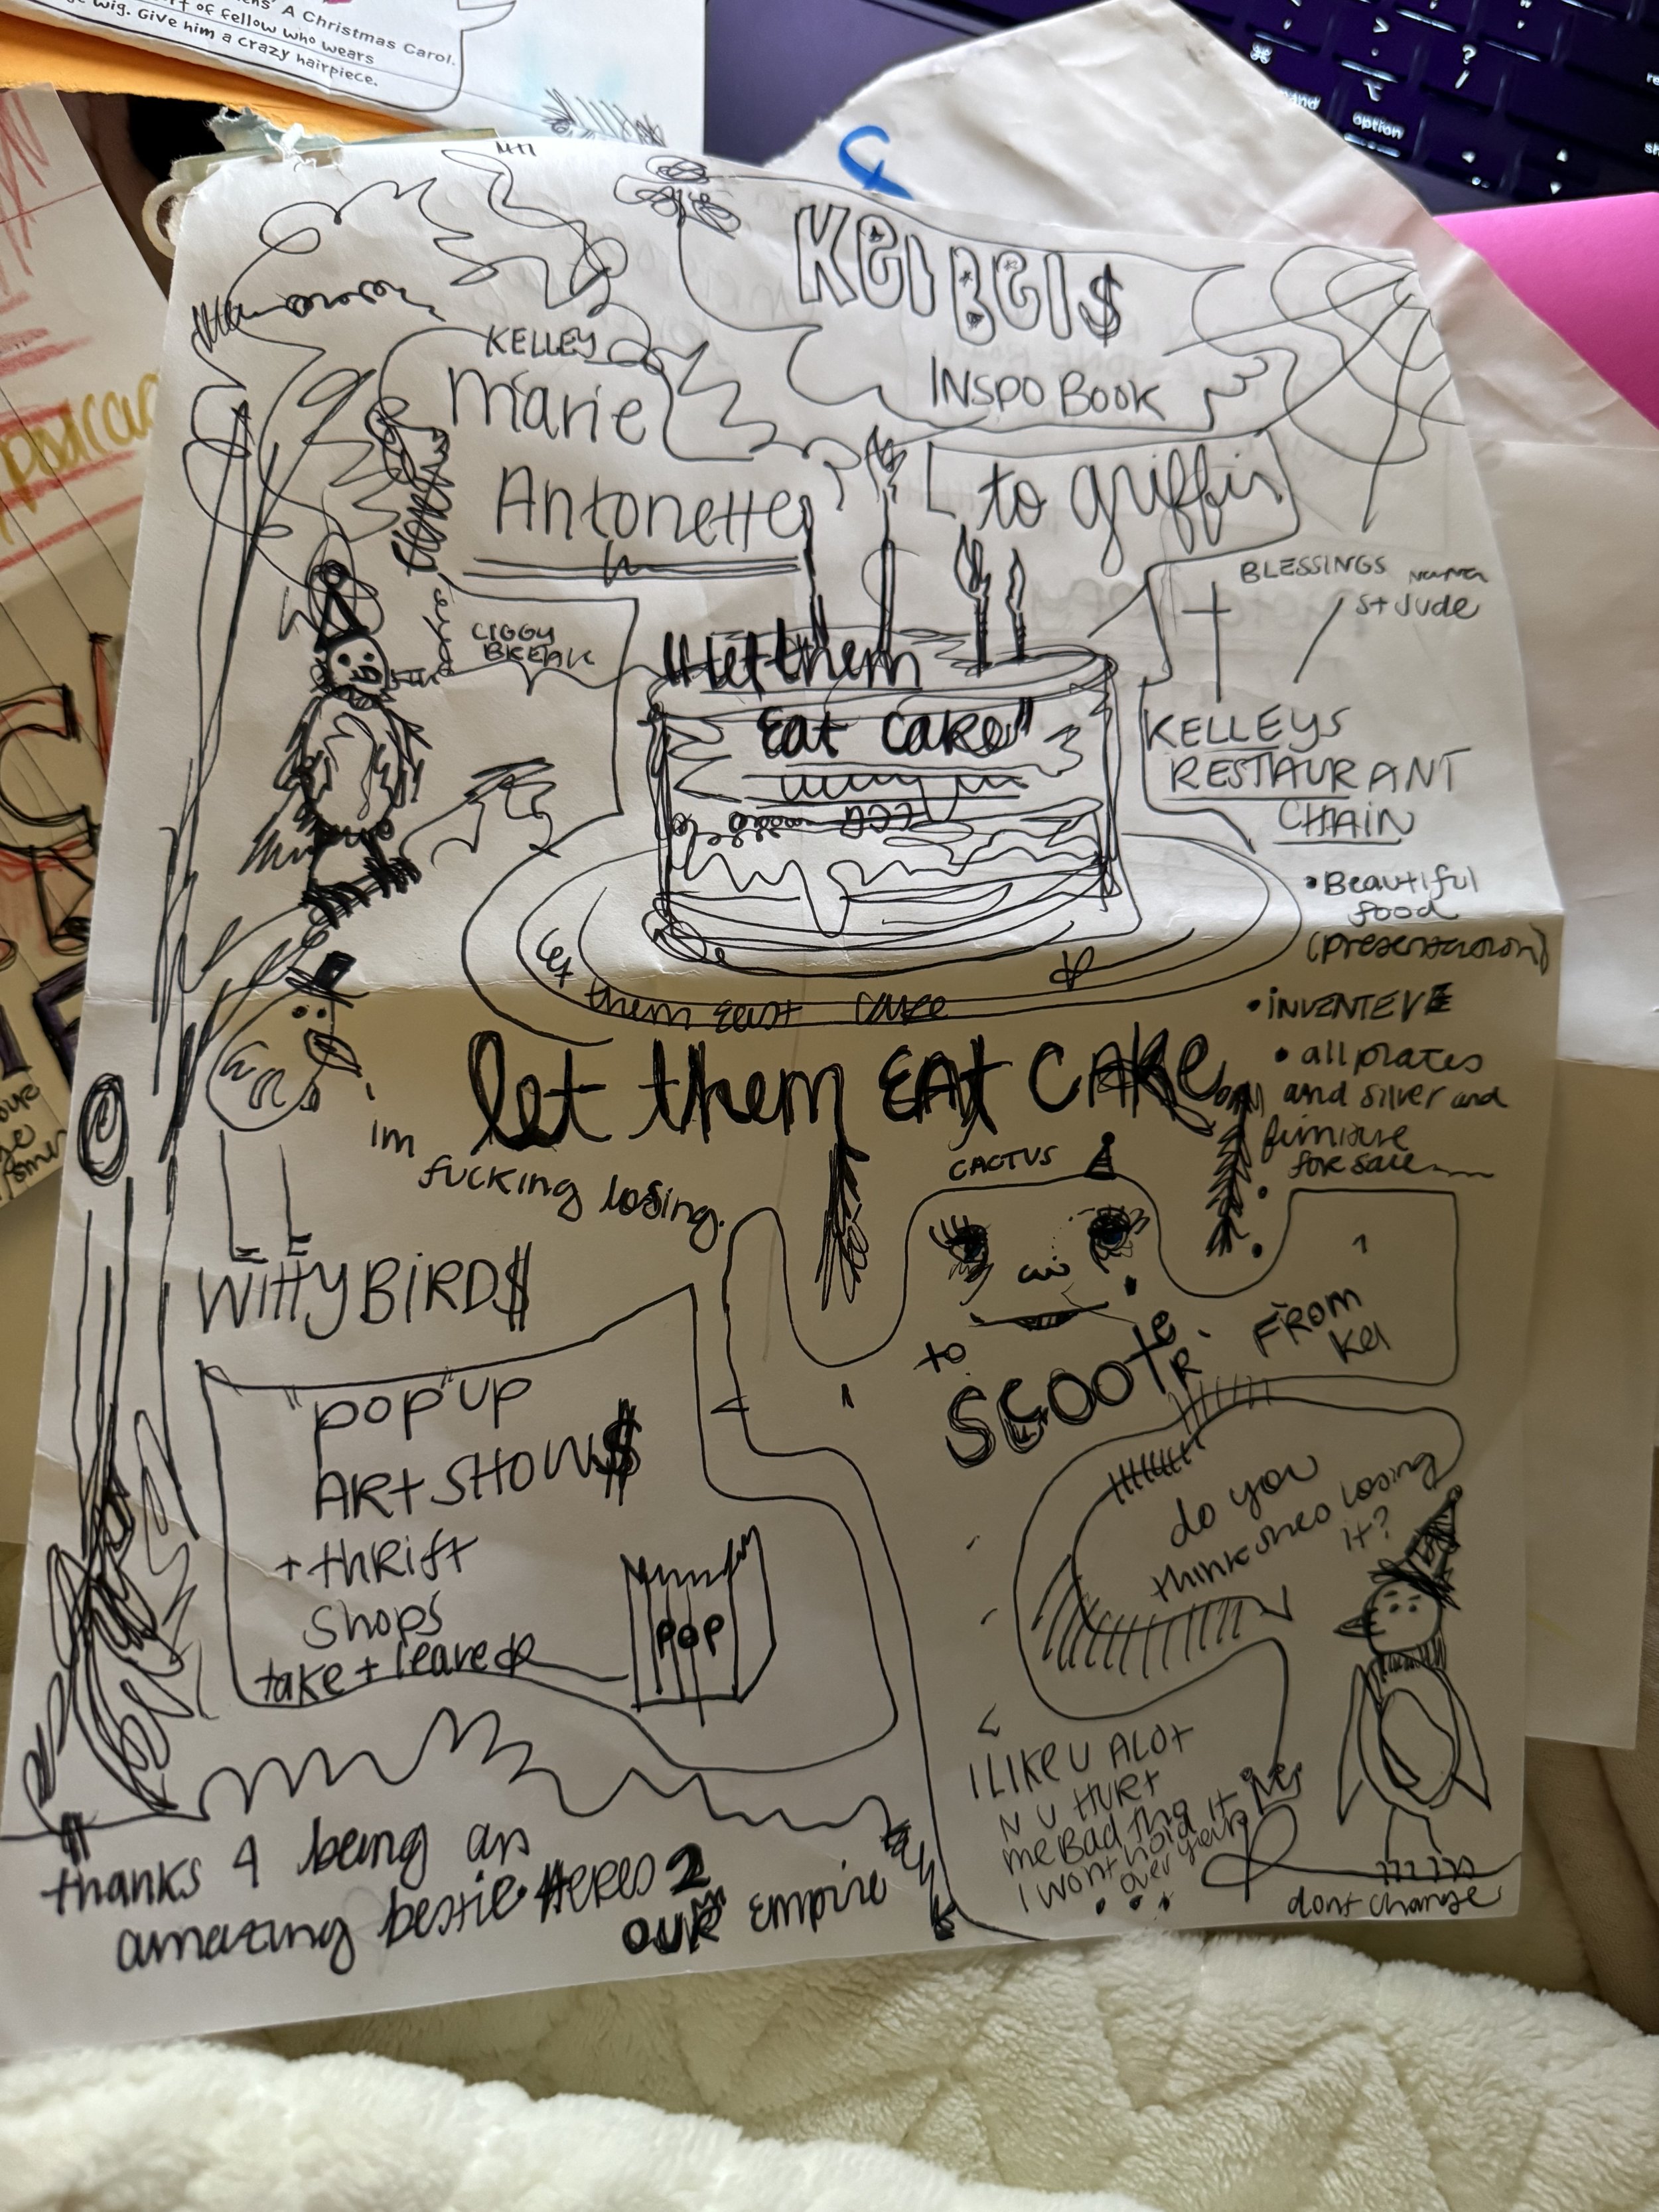 A Christmas Carol.
of fellow who wears
wig. Give him a crazy hairpiece.
option
Kel Bel$
INSPO BOOK
KELLEY
Marie
Antonette
to griffin
BLESSINGS
St Jude
CIGGY
BREAK
"let them
Eat cake"
KELLEYS
RESTAURANT
CHAIN
• Beautiful
food
(presentation)
• INVENTEVE
• all plates
and silver and
furniture
for sale
let
them east cake
let them EAt CAKe
im
fucking losing.
CACTUS
WittyBIRD$
to
SCOOTeR
FROM
Kel
"pop" up
ARt SHOW$
+ thRift
Shops
take + leave
POP
do you
think shes losing
it?
I LIKE U ALOt
N U HURt
me BAD thg It
I wont hold
over your
dont change
thanks 4 being an
amazing bestie. Heres 2
OUR Empire